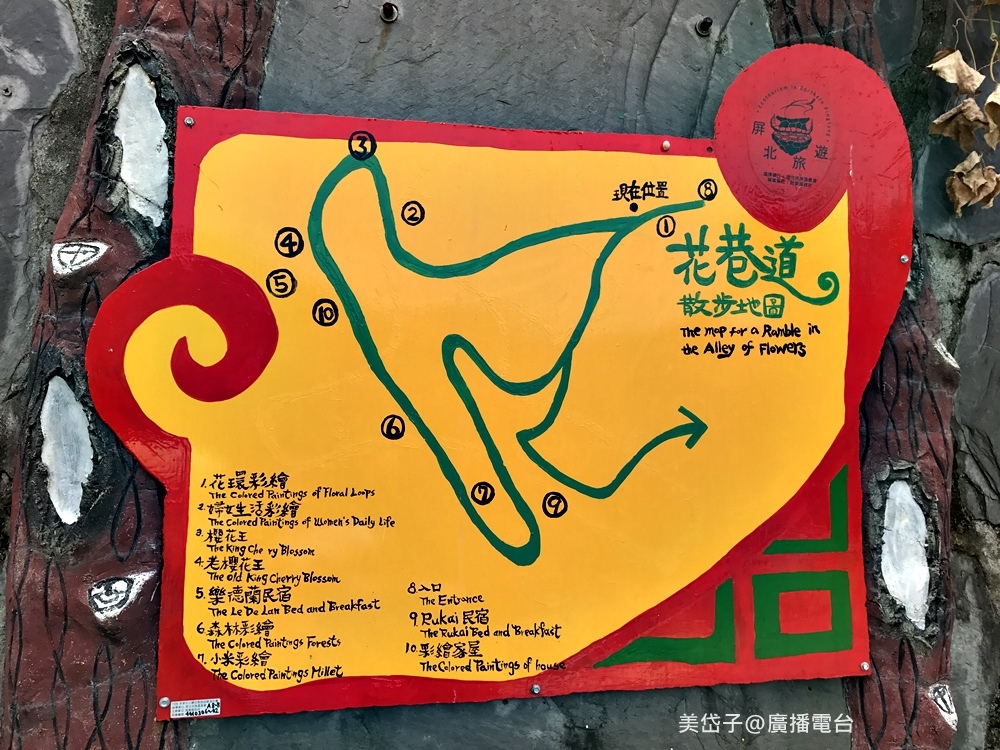 屏北旅遊
③
②
④
⑤
⑩
⑥
⑦
⑨
現在位置
⑧
①
花巷道
散步地圖
The map for a Ramble in
the Alley of Flowers
1. 花環彩繪
The Colored Paintings of Floral Loops
2. 婦女生活彩繪
The Colored Paintings of Women's Daily Life
3. 櫻花王
The King Che ry Blossom
4. 老櫻花王
The old King Cherry Blossom
5. 樂德蘭民宿
The Le De Lan Bed and Breakfast
6. 森林彩繪
The Colored Paintings Forests
7. 小米彩繪
The Colored Paintings Millet
8. 入口
The Entrance
9 Rukai 民宿
The Rukai Bed and Breakfast
10. 彩繪家屋
The Colored Paintings of house
美岱子@廣播電台